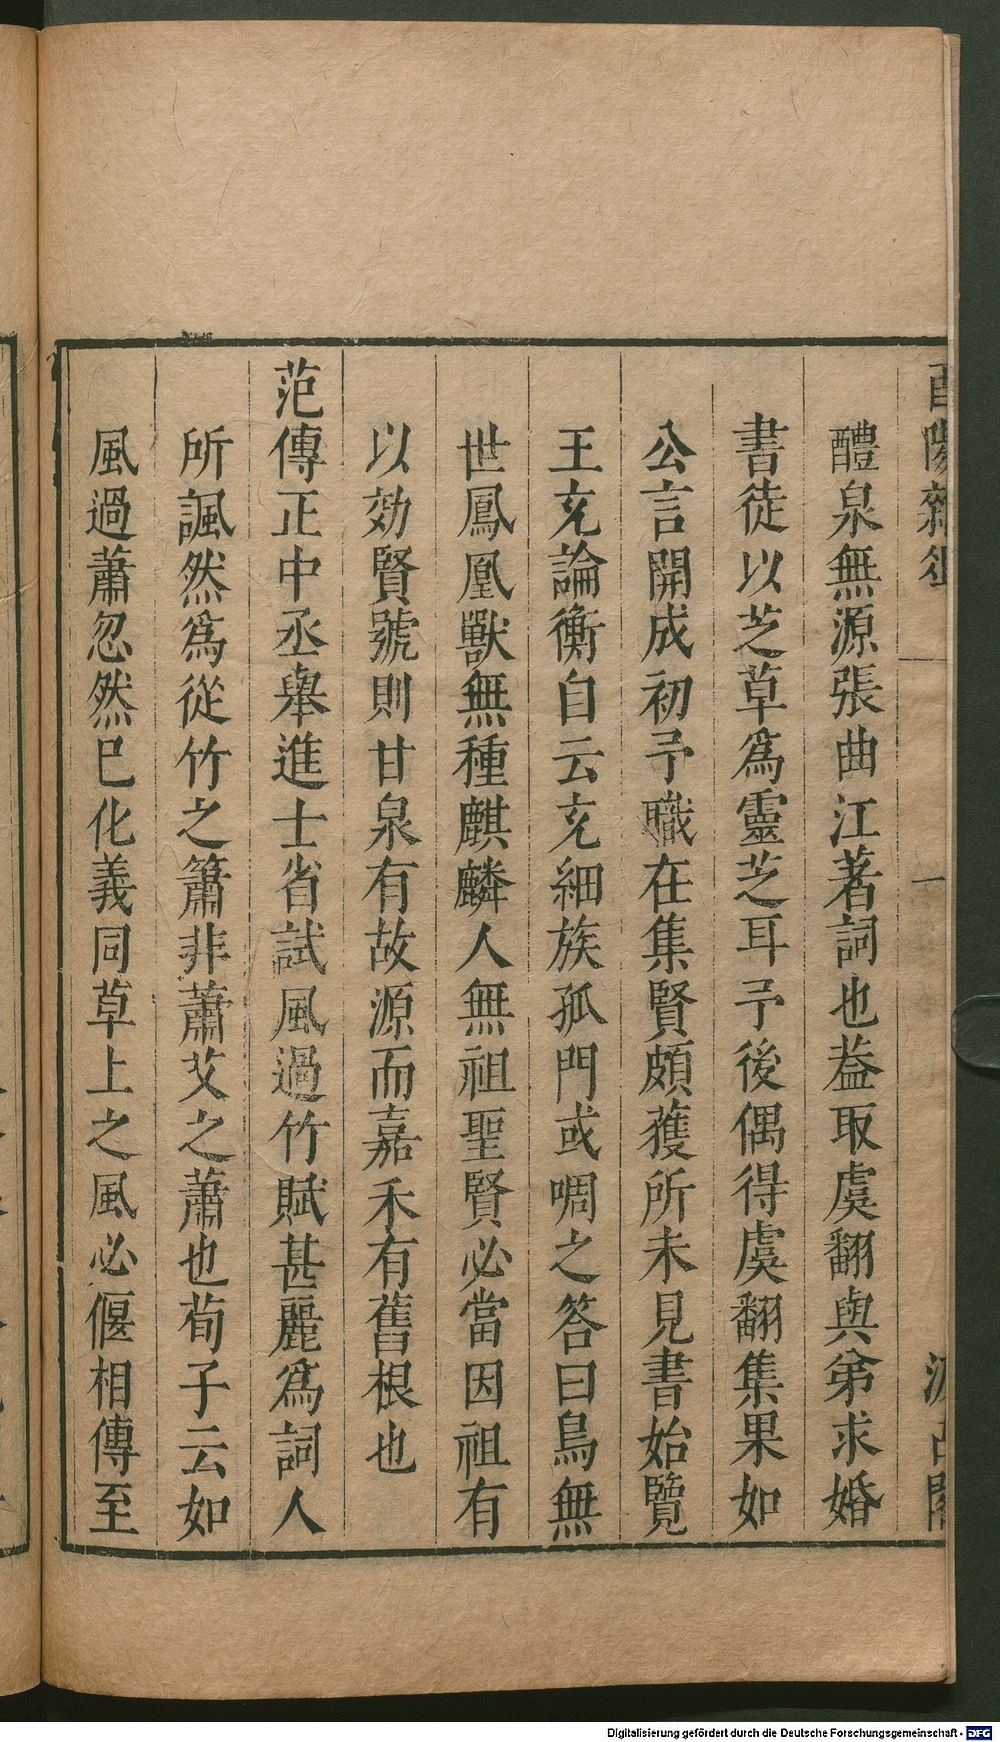 酉陽雜俎
一
汲古閣
醴泉無源張曲江著詞也葢取虞翻與弟求婚
書徒以芝草爲靈芝耳予後偶得虞翻集果如
公言開成初予職在集賢頗獲所未見書始覽
王充論衡自云充細族孤門或啁之答曰鳥無
世鳳凰獸無種麒麟人無祖聖賢必當因祖有
以効賢號則甘泉有故源而嘉禾有舊根也
范傳正中丞舉進士省試風過竹賦甚麗爲詞人
所諷然爲從竹之簫非蕭艾之蕭也荀子云如
風過蕭忽然巳化義同草上之風必偃相傳至
Digitalisierung gefördert durch die Deutsche Forschungsgemeinschaft - DFG